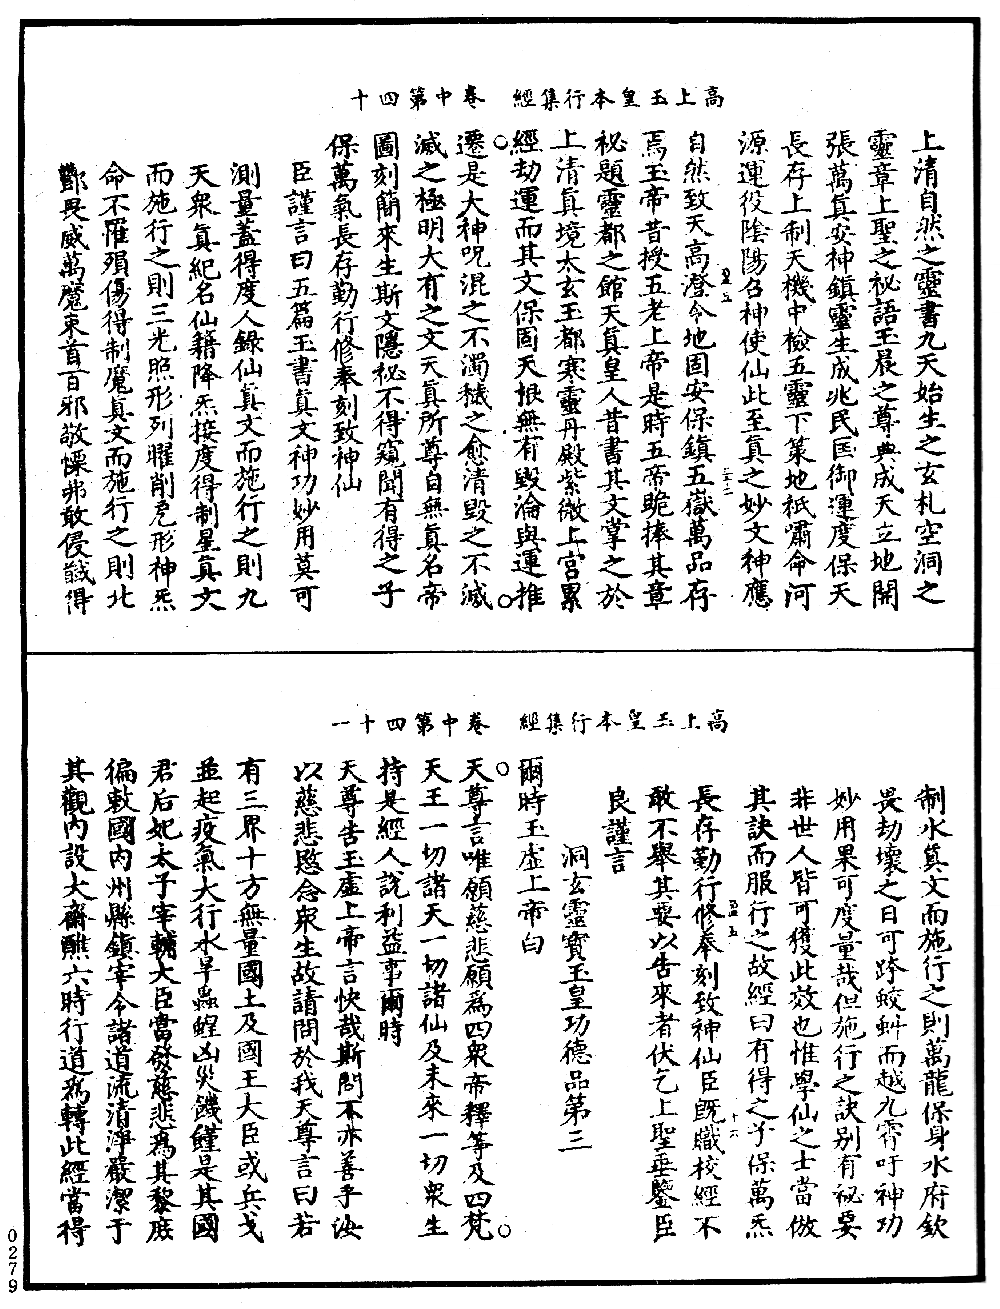 高上玉皇本行集經　卷中第四十
上清自然之靈書九天始生之玄札空洞之
靈章上聖之秘語玉晨之尊典成天立地開
張萬真安神鎮靈生成兆民匡御運度保天
長存上制天機中檢五靈下策地祇嘯命河
源運役陰陽召神使仙此至真之妙文神應
自然致天高澄令地固安保鎮五嶽萬品存
焉玉帝昔授五老上帝是時五帝跪捧其章
祕題靈都之館天真皇人昔書其文掌之於
上清真境太玄玉都寒靈丹殿紫微上宮累
經劫運而其文保固天根無有毀淪與運推
遷是大神呪混之不濁穢之愈清毀之不滅
滅之極明大有之文天真所尊自無真名帝
圖刻簡來生斯文隱祕不得窺聞有得之子
保萬氣長存勤行修奉刻致神仙
臣謹言曰五篇玉書真文神功妙用莫可
測量蓋得度人錄仙真文而施行之則九
天眾真紀名仙籍降炁接度得制星真文
而施行之則三光照形列曜削死形神炁
命不罹殞傷得制魔真文而施行之則北
酆畏威萬魔束首百邪敬慄弗敢侵誠得
高上玉皇本行集經　卷中第四十一
制水真文而施行之則萬龍保身水府欽
畏劫壞之日可跨蛟虯而越九霄吁神功
妙用果可度量哉但施行之訣別有祕要
非世人皆可獲此效也惟學仙之士當倣
其訣而服行之故經曰有得之子保萬炁
長存勤行修奉刻致神仙臣既職校經不
敢不舉其要以告來者伏乞上聖垂鑒臣
良謹言
洞玄靈寶玉皇功德品第三
爾時玉虛上帝白
天尊言唯願慈悲願為四眾帝釋等及四梵
天王一切諸天一切諸仙及未來一切眾生
持是經人說利益事爾時
天尊告玉虛上帝言快哉斯問不亦善乎汝
以慈悲愍念眾生故請問於我天尊言曰若
有三界十方無量國土及國王大臣或兵戈
並起疫氣大行水旱蟲蝗凶災饑饉是其國
君后妃太子宰輔大臣當發慈悲為其黎庶
徧敕國內州縣鎮宰令諸道流清淨嚴潔于
其觀內設大齋醮六時行道為轉此經當得
0279